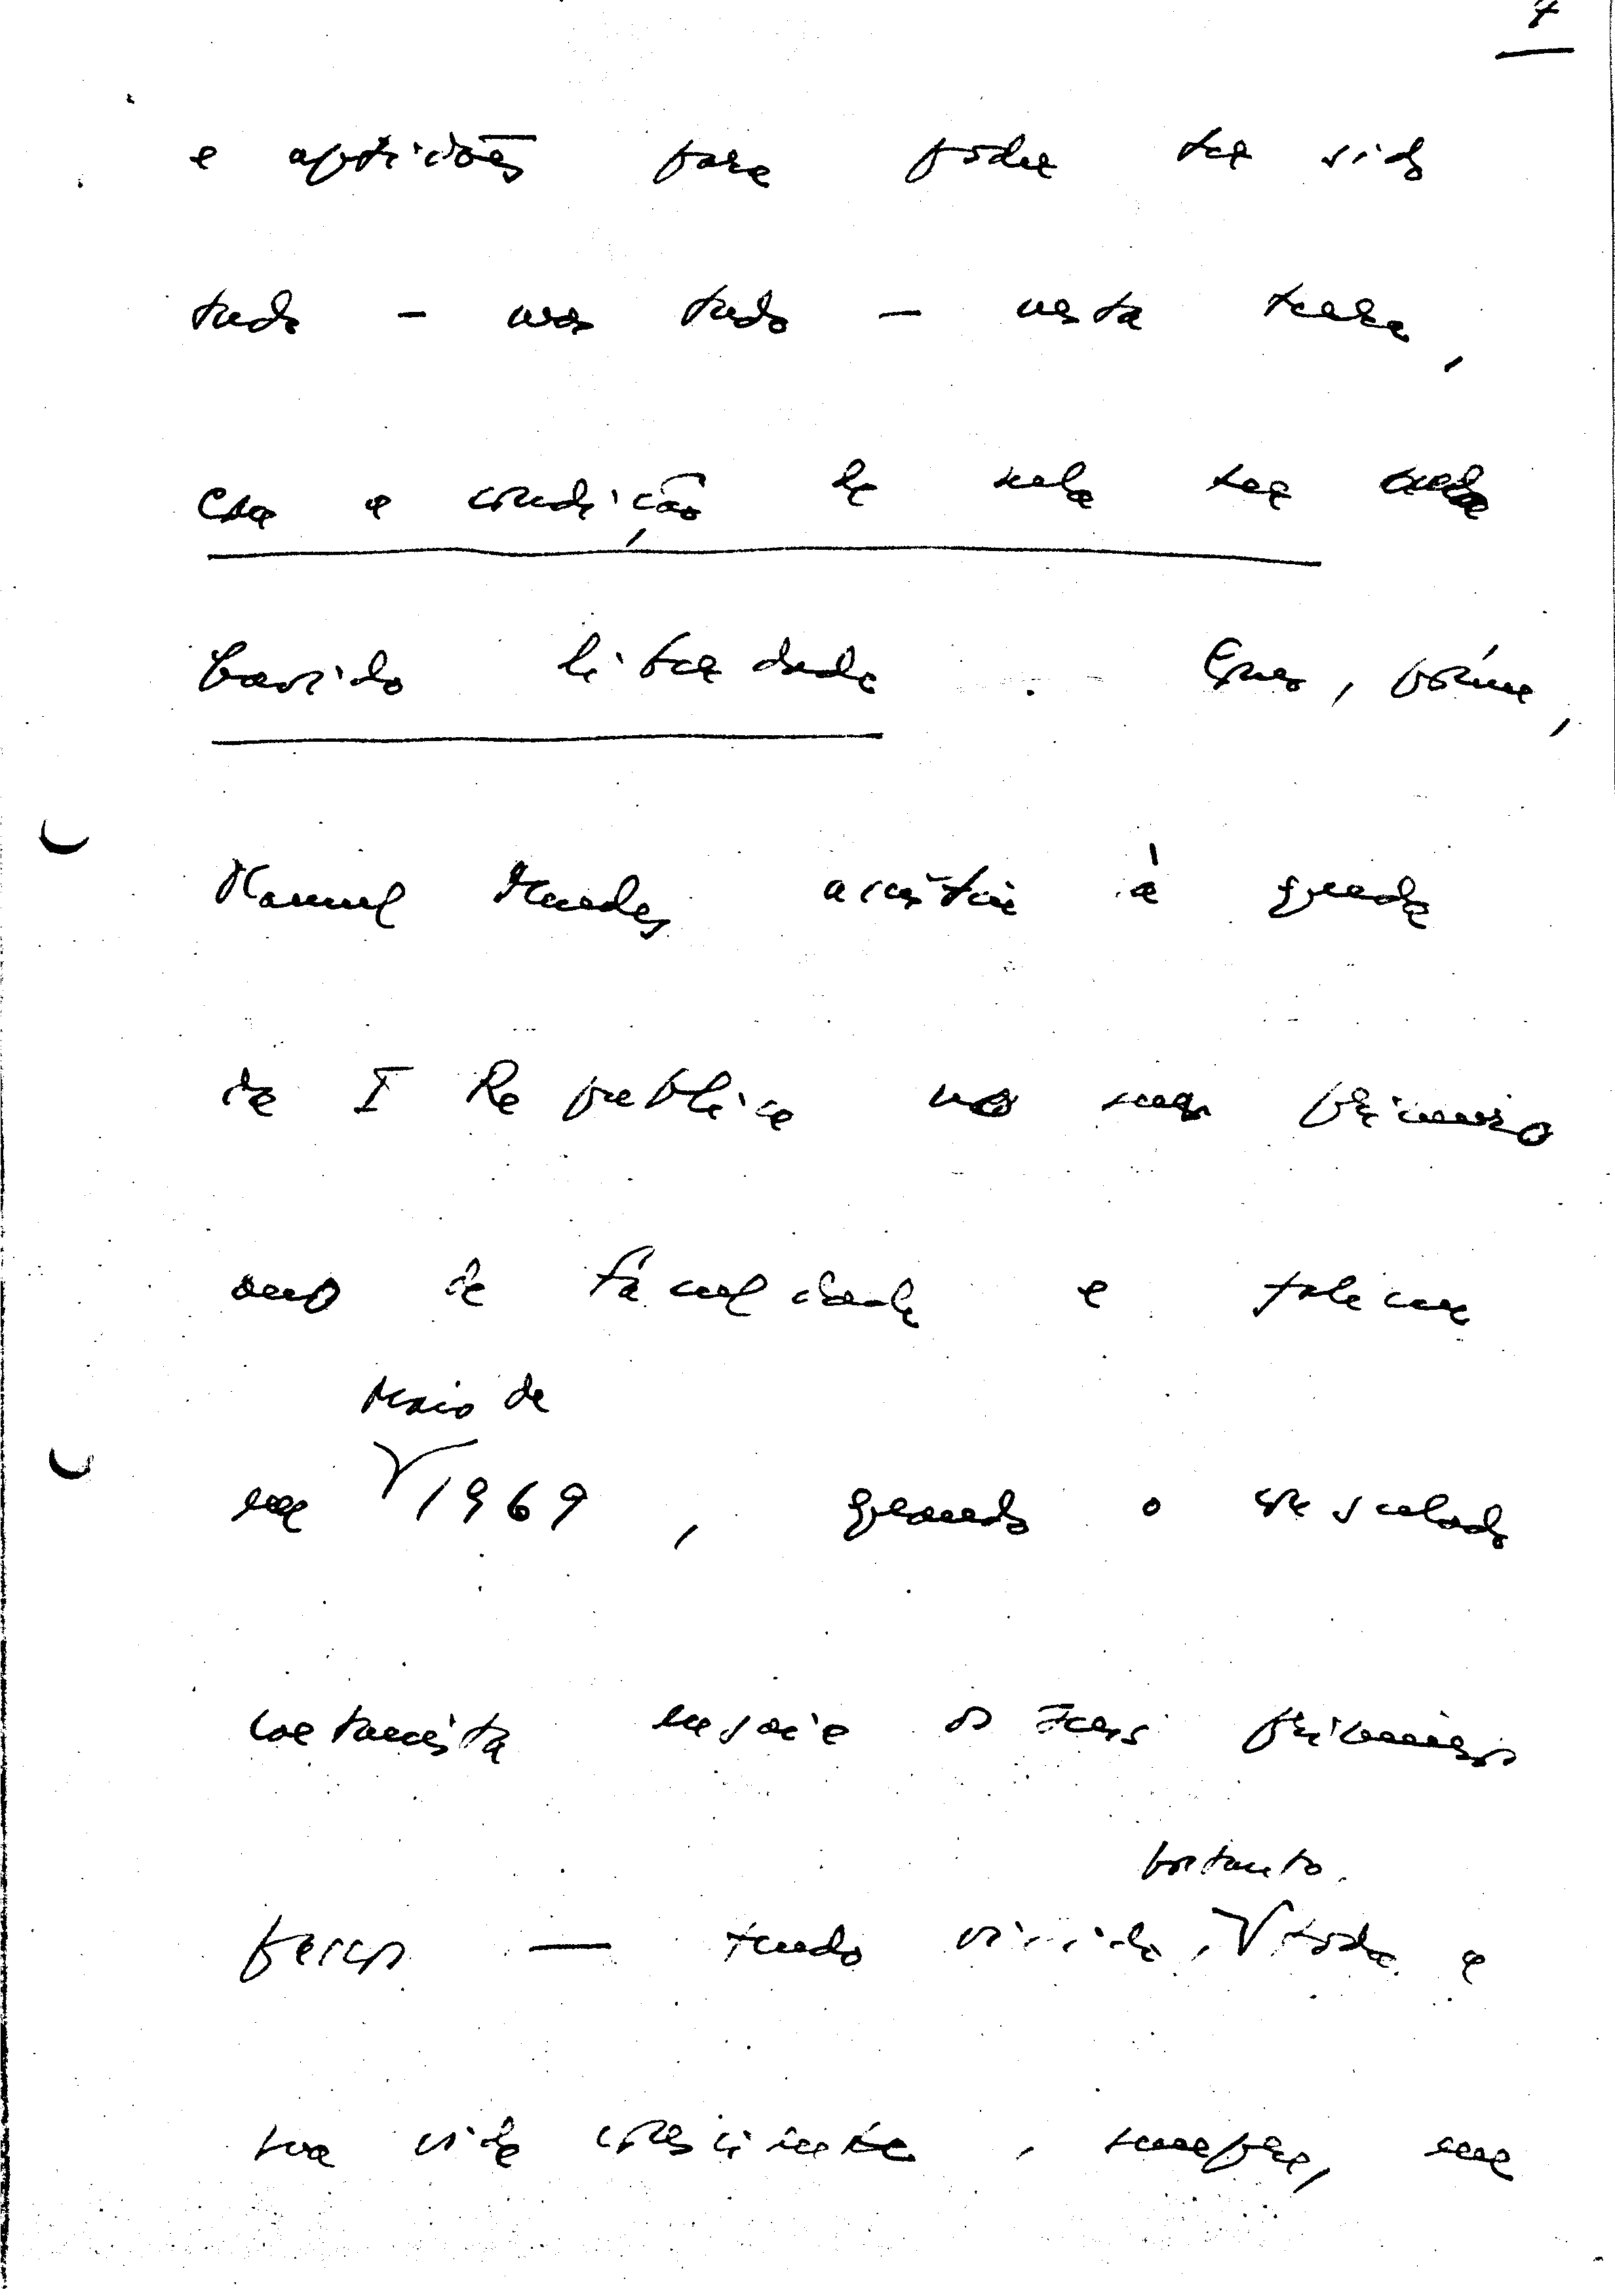 7
e aptidões para poder ter sido
tudo — mas tudo — nesta terra,
com a condição de nela ter
havido liberdade. Como, porém,
Manuel Mendes assistiu à queda
da I Republica no seu primeiro
ano de Faculdade e faleceu
Maio de
em 1969, quando o consulado
marcelista ensaia os seus primeiros
portanto,
passos — tendo vivido, toda a
sua vida consciente, sempre, em